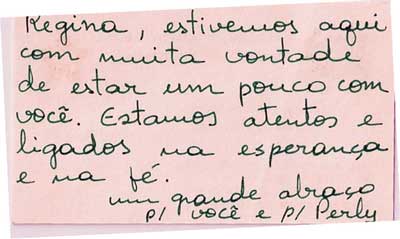 Regina, estivemos aqui
com muita vontade
de estar um pouco com
você. Estamos atentos e
ligados na esperança
e na fé.
um grande abraço
p/ você e p/ Perly